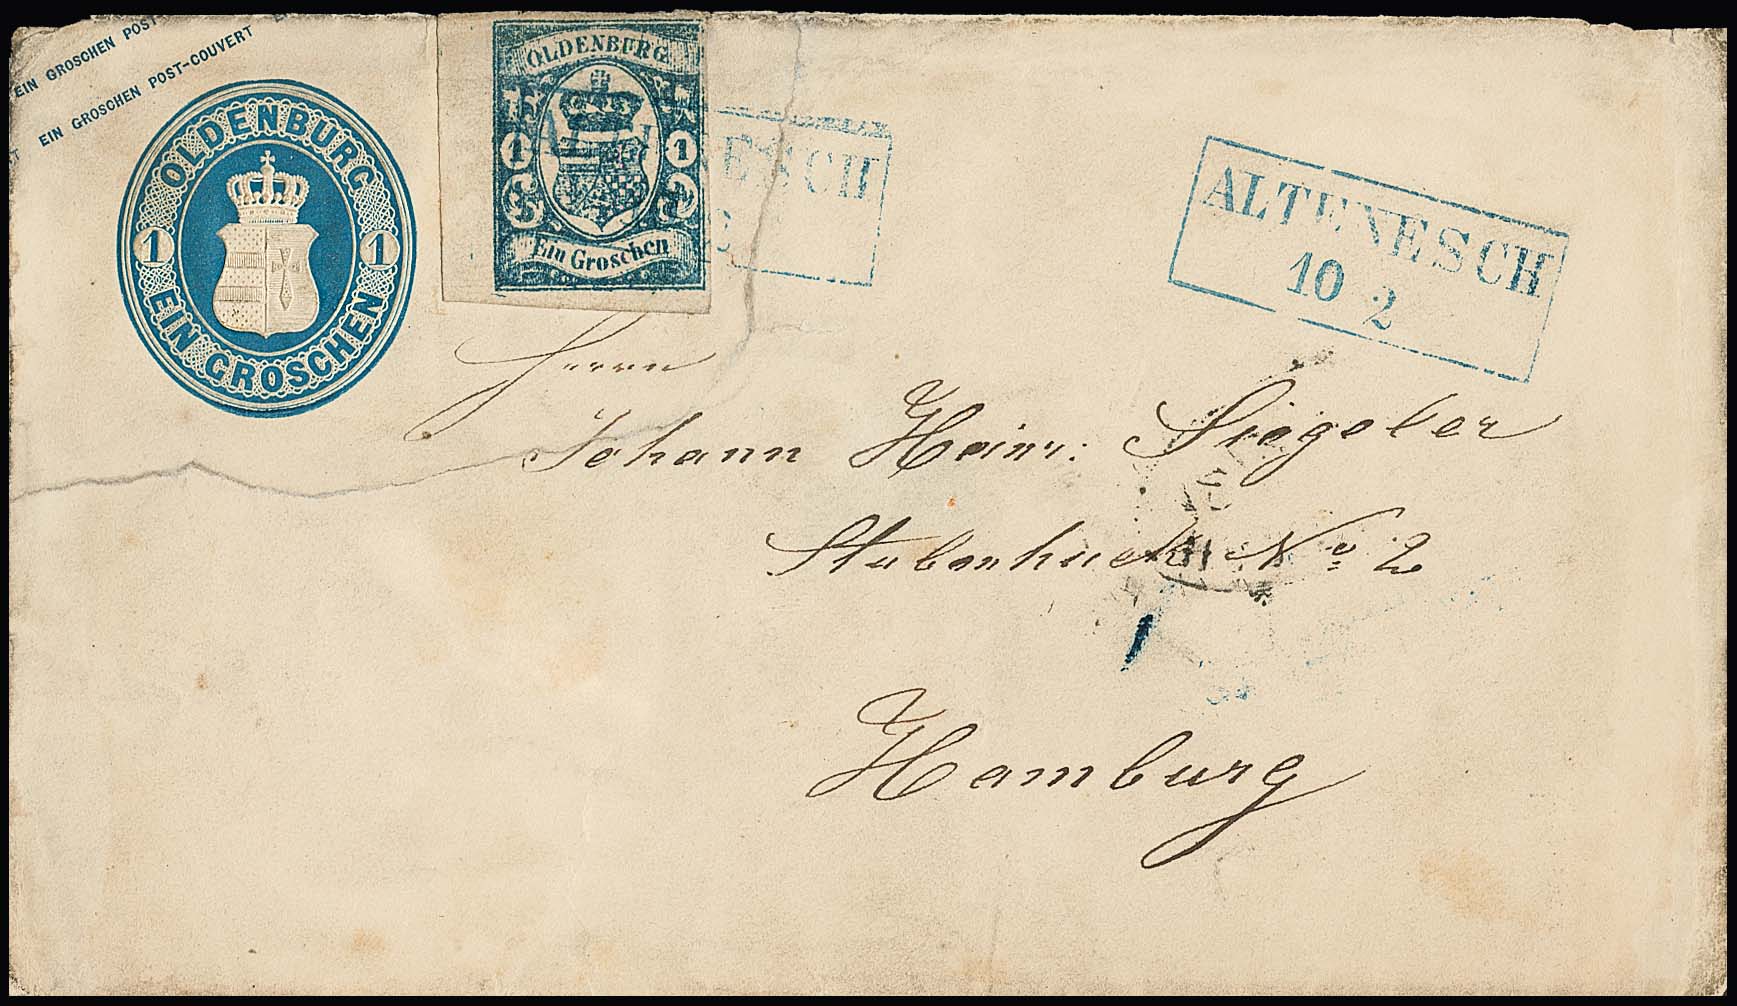 EIN GROSCHEN POST-
EIN GROSCHEN POST-COUVERT
OLDENBURG
1 1
EIN GROSCHEN
OLDENBURG
1 1
Ein Groschen
ALTENESCH
2
ALTENESCH
10 2
Herrn
Johann Heinr: Siegeler
Stubenhuck No 2
Hamburg